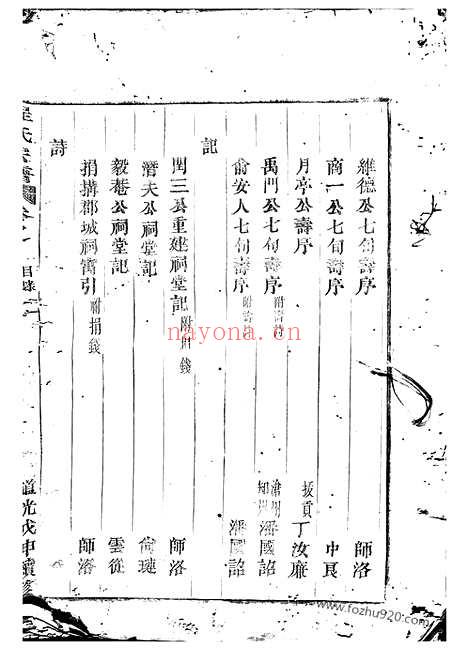 維德公七旬壽序 師洛
商一公七旬壽序 中艮
月亭公壽序 拔貢 丁汝廉
禹門公七旬壽序 附壽詩 知州 潘國詔
俞安人七旬壽序 附壽詩 潘國詔
記
閏三公重建祠堂記 附用錢 師洛
潛夫公祠堂記 尙璉
毅菴公祠堂記 雲從
捐搆郡城祠寓引 附捐錢 師洛
詩
氏宗譜 目錄
道光戊申續修
nayona.cn
www.fozhu920.com